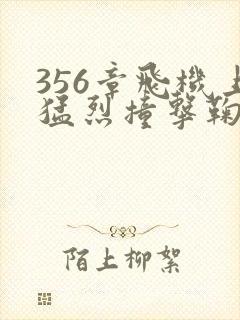 356章飛機上
猛烈撞擊鞠
陌上柳絮